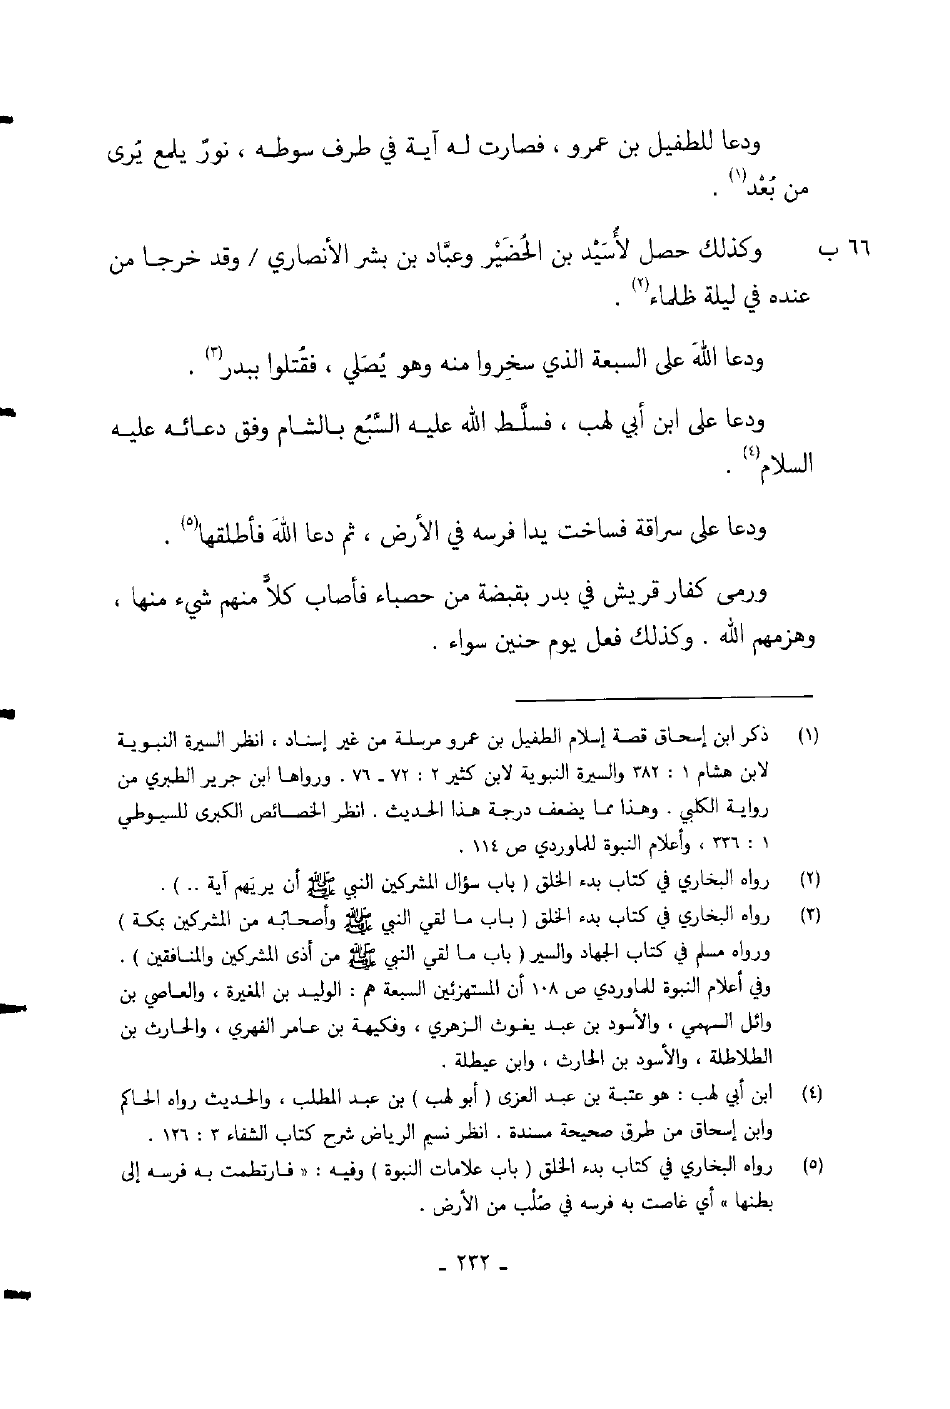 ودعا للطفيل بن عمرو ، فصارت له آية في طرف سوطه ، نورٌ يلمع يُرى
من بُعْد(١) .
٦٦ ب وكذلك حصل لأُسَيْد بن الحُضَيْر وعبَّاد بن بشر الأنصاري / وقد خرجا من
عنده في ليلة ظلماء(٢) .
ودعا اللهَ على السبعة الذي سخِروا منه وهو يُصَلي ، فقُتلوا ببدر(٣) .
ودعا على ابن أبي لهب ، فسلَّط الله عليه السَّبُع بالشام وفق دعائه عليه
السلام(٤) .
ودعا على سراقة فساخت يدا فرسه في الأرض ، ثم دعا اللهَ فأطلقها(٥) .
ورمى كفار قريش في بدر بقبضة من حصباء فأصاب كلاًّ منهم شيء منها ،
وهزمهم الله . وكذلك فعل يوم حنين سواء .
(١) ذكر ابن إسحاق قصة إسلام الطفيل بن عمرو مرسلة من غير إسناد ، انظر السيرة النبوية
لابن هشام ١ : ٣٨٢ والسيرة النبوية لابن كثير ٢ : ٧٢ ـ ٧٦ . ورواها ابن جرير الطبري من
رواية الكلبي . وهذا مما يضعف درجة هذا الحديث . انظر الخصائص الكبرى للسيوطي
١ : ٣٣٦ ، وأعلام النبوة للماوردي ص ١١٤ .
(٢) رواه البخاري في كتاب بدء الخلق ( باب سؤال المشركين النبي ﷺ أن يريَهم آية .. ) .
(٣) رواه البخاري في كتاب بدء الخلق ( باب ما لقي النبي ﷺ وأصحابُه من المشركين بمكة )
ورواه مسلم في كتاب الجهاد والسير ( باب ما لقي النبي ﷺ من أذى المشركين والمنافقين ) .
وفي أعلام النبوة للماوردي ص ١٠٨ أن المستهزئين السبعة هم : الوليد بن المغيرة ، والعاصي بن
وائل السهمي ، والأسود بن عبد يغوث الزهري ، وفكيهة بن عامر الفهري ، والحارث بن
الطلاطلة ، والأسود بن الحارث ، وابن عيطلة .
(٤) ابن أبي لهب : هو عتبة بن عبد العزى ( أبو لهب ) بن عبد المطلب ، والحديث رواه الحاكم
وابن إسحاق من طرق صحيحة مسندة . انظر نسيم الرياض شرح كتاب الشفاء ٣ : ١٢٦ .
(٥) رواه البخاري في كتاب بدء الخلق ( باب علامات النبوة ) وفيه : « فارتطمت به فرسه إلى
بطنها » أي غاصت به فرسه في صُلْب من الأرض .
ـ ٢٣٢ ـ